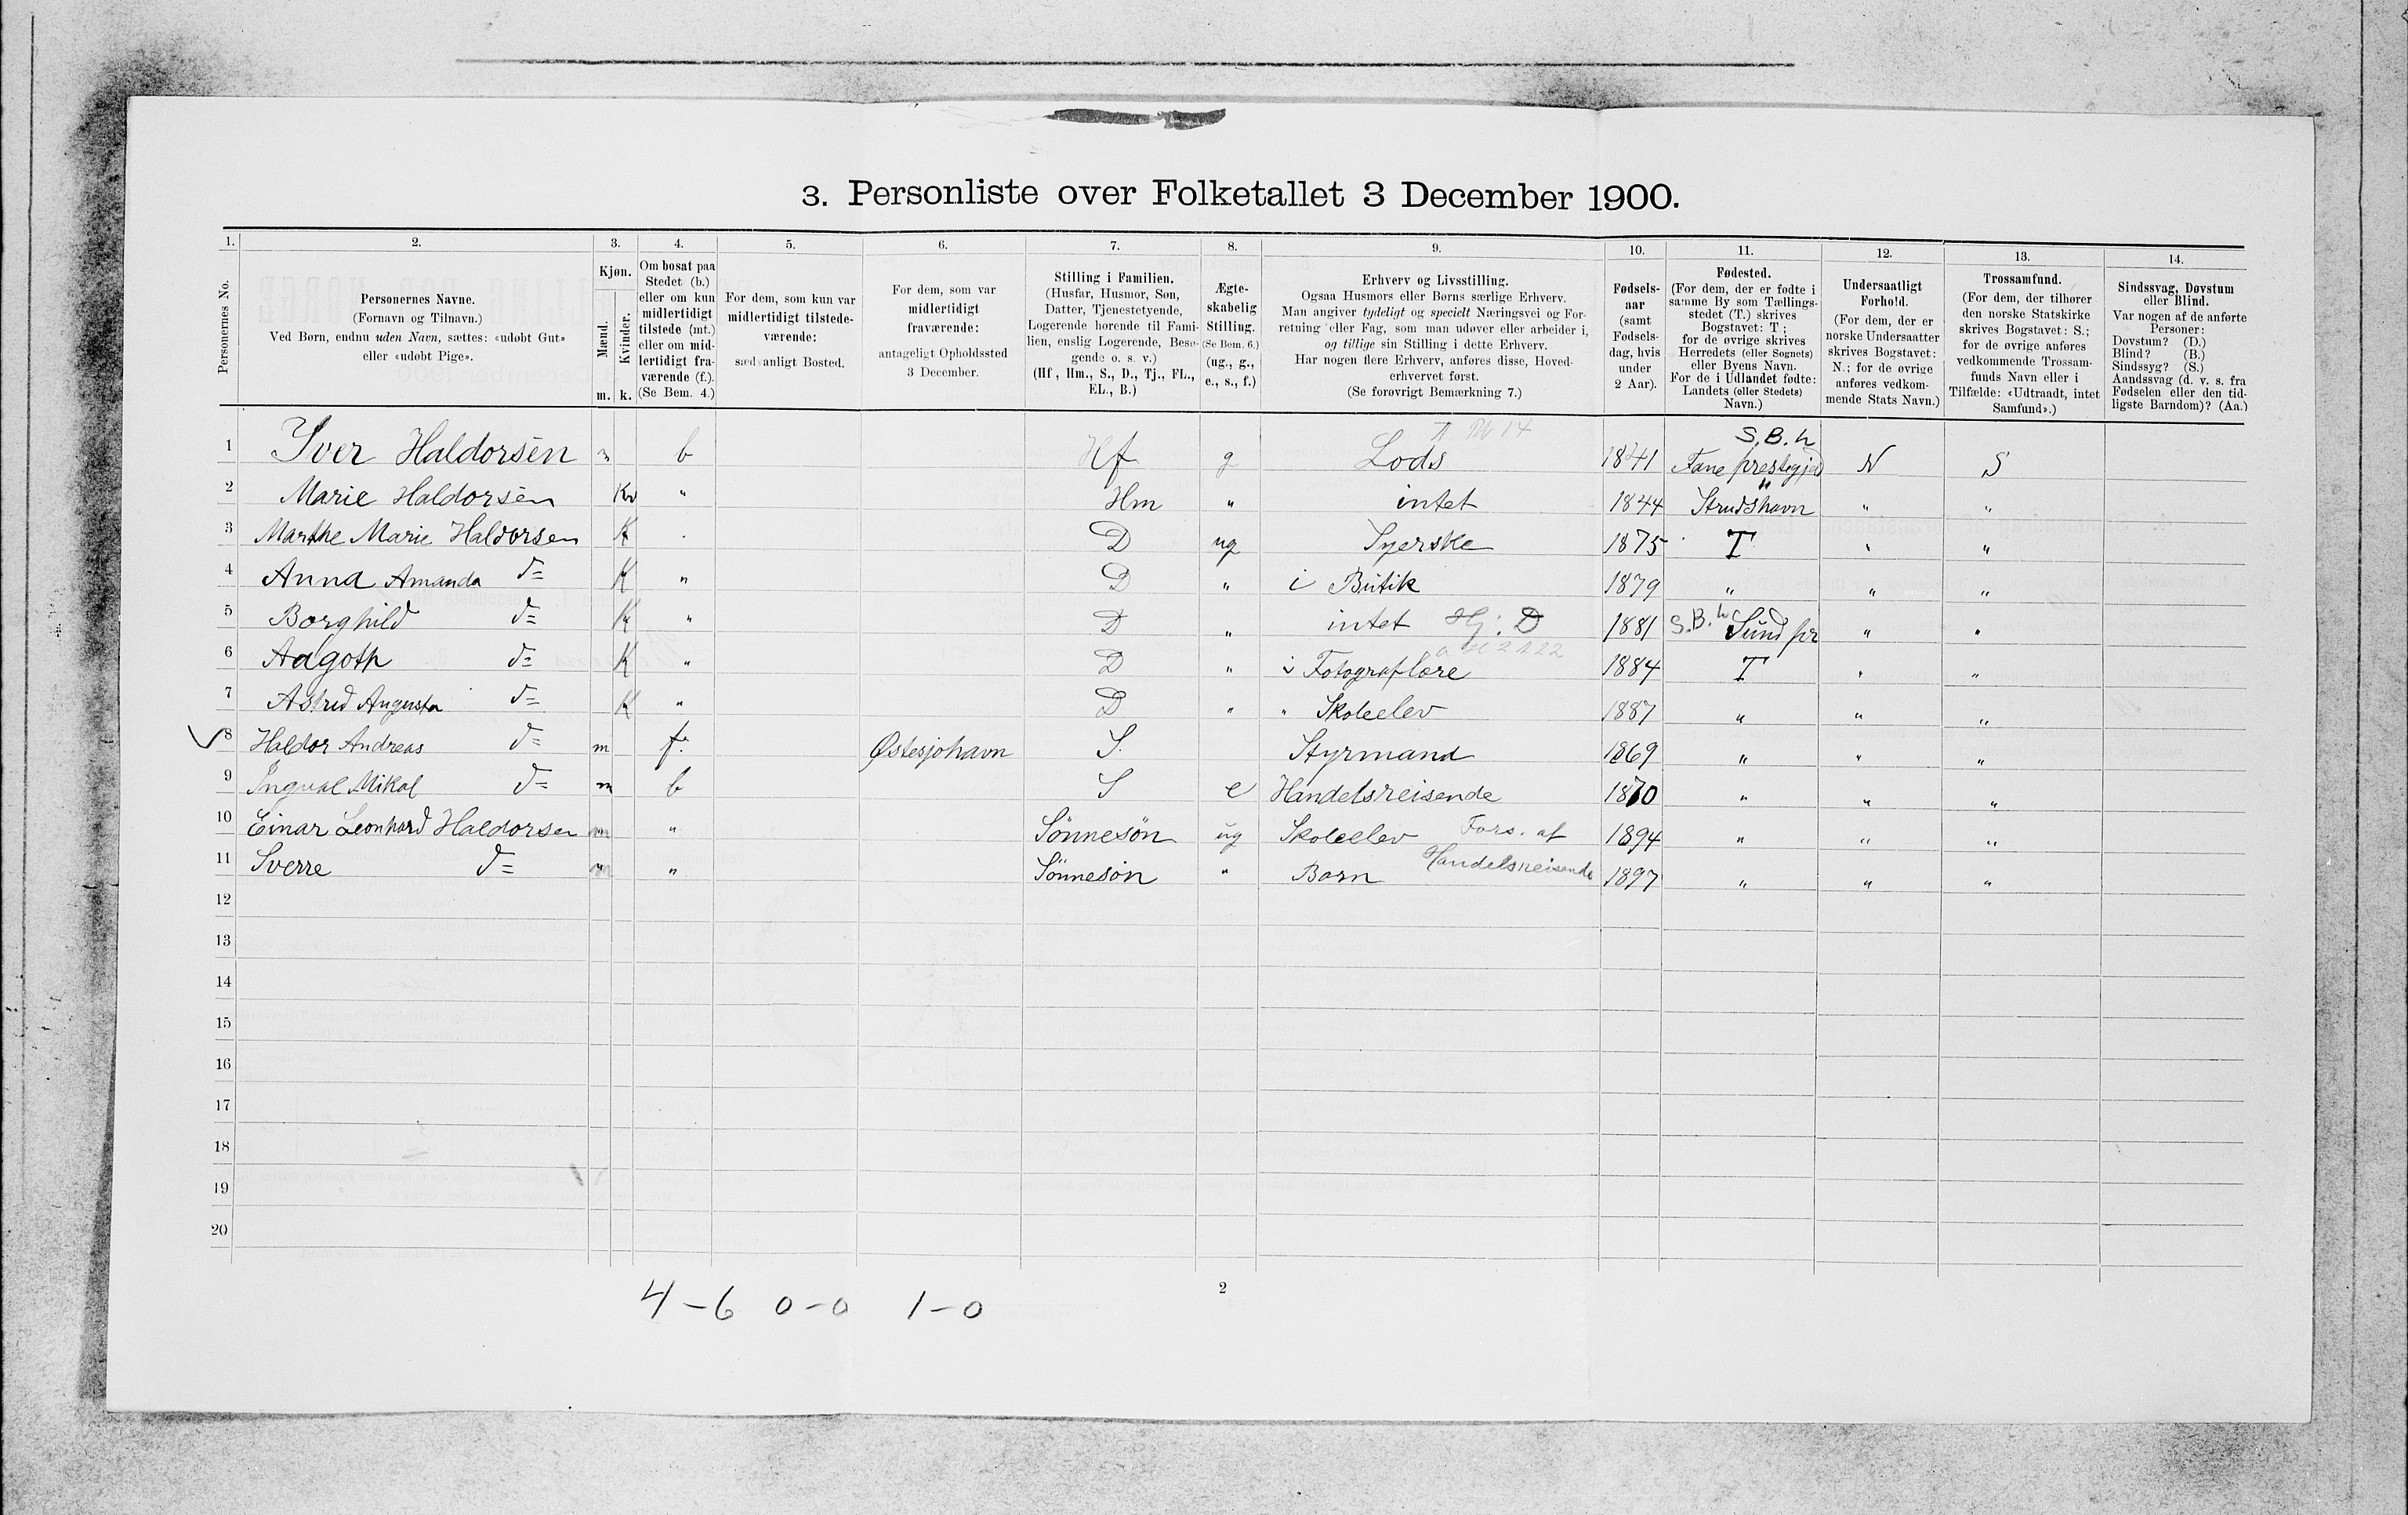 3. Personliste over Folketallet 3 December 1900.
1. 2. 3. 4. 5. 6. 7. 8. 9. 10. 11. 12. 13. 14.
Personernes No.
Personernes Navne.
(Fornavn og Tilnavn.)
Ved Børn, endnu uden Navn, sættes: «udøbt Gut»
eller «udøbt Pige».
Kjøn.
Mænd.
Kvinder.
m. k.
Om bosat paa
Stedet (b.)
eller om kun
midlertidigt
tilstede (mt.)
eller om mid-
lertidigt fra-
værende (f.).
(Se Bem. 4.)
For dem, som kun var
midlertidigt tilstede-
værende:
sædvanligt Bosted.
For dem, som var
midlertidigt
fraværende:
antageligt Opholdssted
3 December.
Stilling i Familien.
(Husfar, Husmor, Søn,
Datter, Tjenestetyende,
Logerende hørende til Fami-
lien, enslig Logerende, Besø-
gende o. s. v.)
(Hf., Hm., S., D., Tj., FL.,
EL., B.)
Ægte-
skabelig
Stilling.
(Se Bem. 6.)
(ug., g.,
e., s., f.)
Erhverv og Livsstilling.
Ogsaa Husmors eller Børns særlige Erhverv.
Man angiver tydeligt og specielt Næringsvei og For-
retning eller Fag, som man udøver eller arbeider i,
og tillige sin Stilling i dette Erhverv.
Har nogen flere Erhverv, anføres disse, Hoved-
erhvervet først.
(Se forøvrigt Bemærkning 7.)
Fødsels-
aar
(samt
Fødsels-
dag, hvis
under
2 Aar).
Fødested.
(For dem, der er fødte i
samme By som Tællings-
stedet (T.) skrives
Bogstavet: T;
for de øvrige skrives
Herredets (eller Sognets)
eller Byens Navn.
For de i Udlandet fødte:
Landets (eller Stedets)
Navn.)
Undersaatligt
Forhold.
(For dem, der er
norske Undersaatter
skrives Bogstavet:
N.; for de øvrige
anføres vedkom-
mende Stats Navn.)
Trossamfund.
(For dem, der tilhører
den norske Statskirke
skrives Bogstavet: S.;
for de øvrige anføres
vedkommende Trossam-
funds Navn eller i
Tilfælde: «Udtraadt, intet
Samfund».)
Sindssvag, Døvstum
eller Blind.
Var nogen af de anførte
Personer:
Døvstum? (D.)
Blind? (B.)
Sindssyg? (S.)
Aandssvag (d. v. s. fra
Fødselen eller den tid-
ligste Barndom)? (Aa.)
S.B.h
1 Iver Haldorsen m b Hf g Lods 1841 Fane prestegjd N S
2 Marie Haldorsen Kv " Hm " intet 1844 " Strudshavn " "
3 Marthe Marie Haldorsen K D ug Syerske 1875 T " "
4 Anna Amanda d= K " D " i Butik 1879 " " "
5 Borghild d= K " D " intet Hj: D 1881 S.B.h Sund pr " "
6 Aagoth d= K " D " i Fotograflære 1884 T " "
7 Astrid Augusta d= K " D " " Skoleelev 1887 " " "
8 Haldor Andreas d= m f. Østesjøhavn S. Styrmand 1869 " " "
9 Ingval Mikal d= m b S e Handelsreisende 1870 " " "
10 Einar Leonhard Haldorsen m " Sønnesøn ug Skoleelev Fors. af 1894 " " "
11 Sverre d= m " Sønnesøn " Barn Handelsreisende 1897 " " "
12
13
14
15
16
17
18
19
20
2
4-6 0-0 1-0